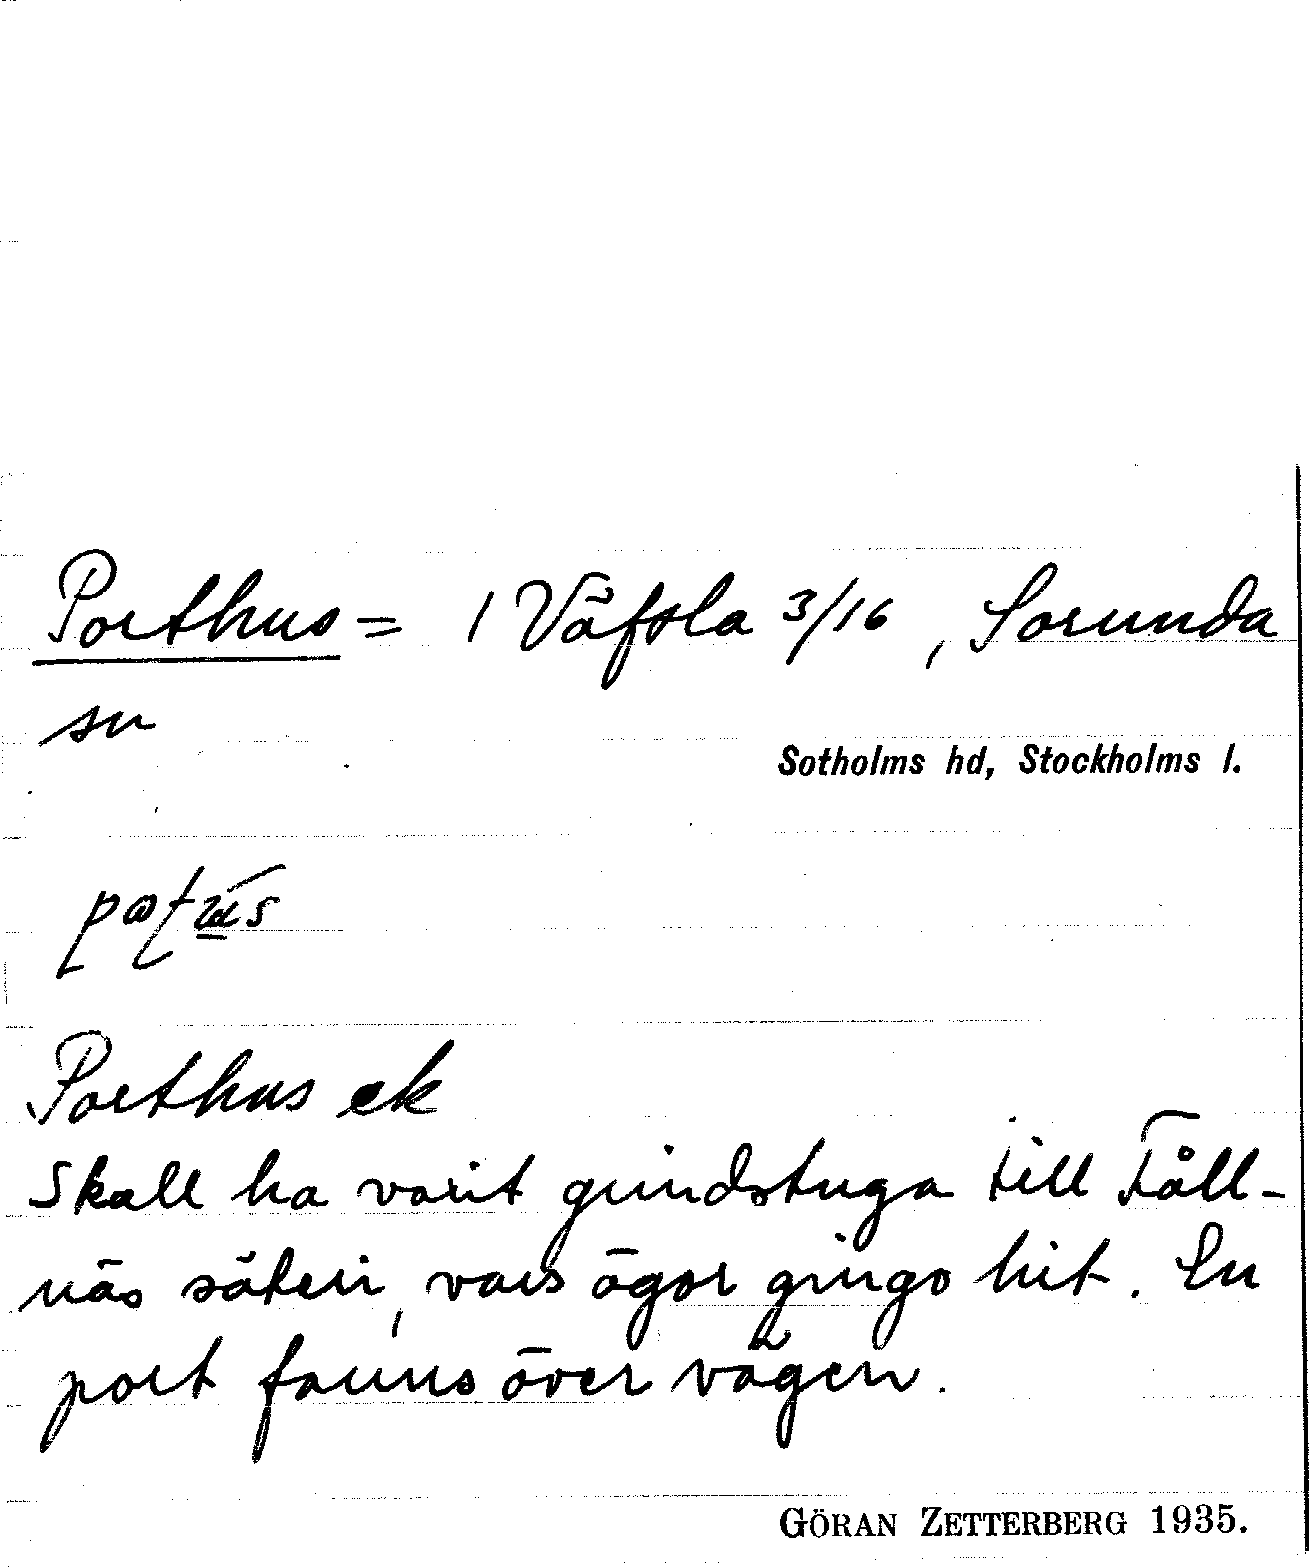 Porthus = / Väfsla 3/16, Sorunda
sn
Sotholms hd, Stockholms l.
Porthus ek
Skall ha varit grindstuga till Fåll-
näs säteri, vars ägor gingo hit. En
port fanns över vägen.
GÖRAN ZETTERBERG 1935.